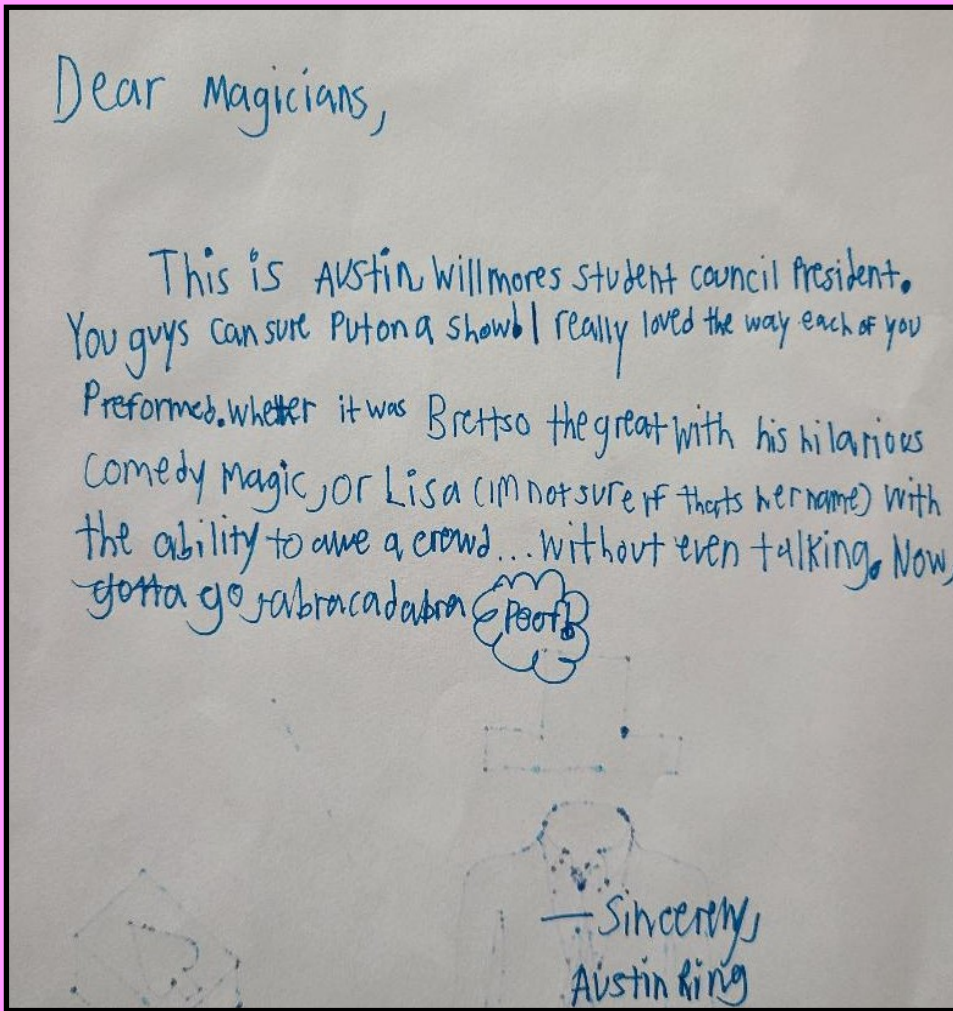 Dear Magicians,
This is Austin Willmores student council President.
You guys can sure Put on a show! I really loved the way each of you
Preformed. whether it was Brettso the great with his hilarious
comedy magic, or Lisa (im not sure if thats her name) with
the ability to awe a crowd... without even talking. Now,
gotta go, abracadabra Poof!
— Sincerely,
Austin King